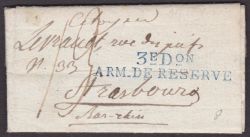 Citoyen
Levrault, rue des juifs
N. 33
3E DON
ARM. DE RESERVE
Strasbourg
Bas-rhin